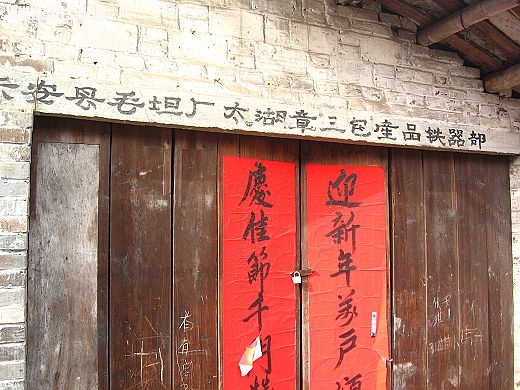 六安县毛坦厂太湖章三包產品铁器部
迎新年萬戶
慶佳節千門